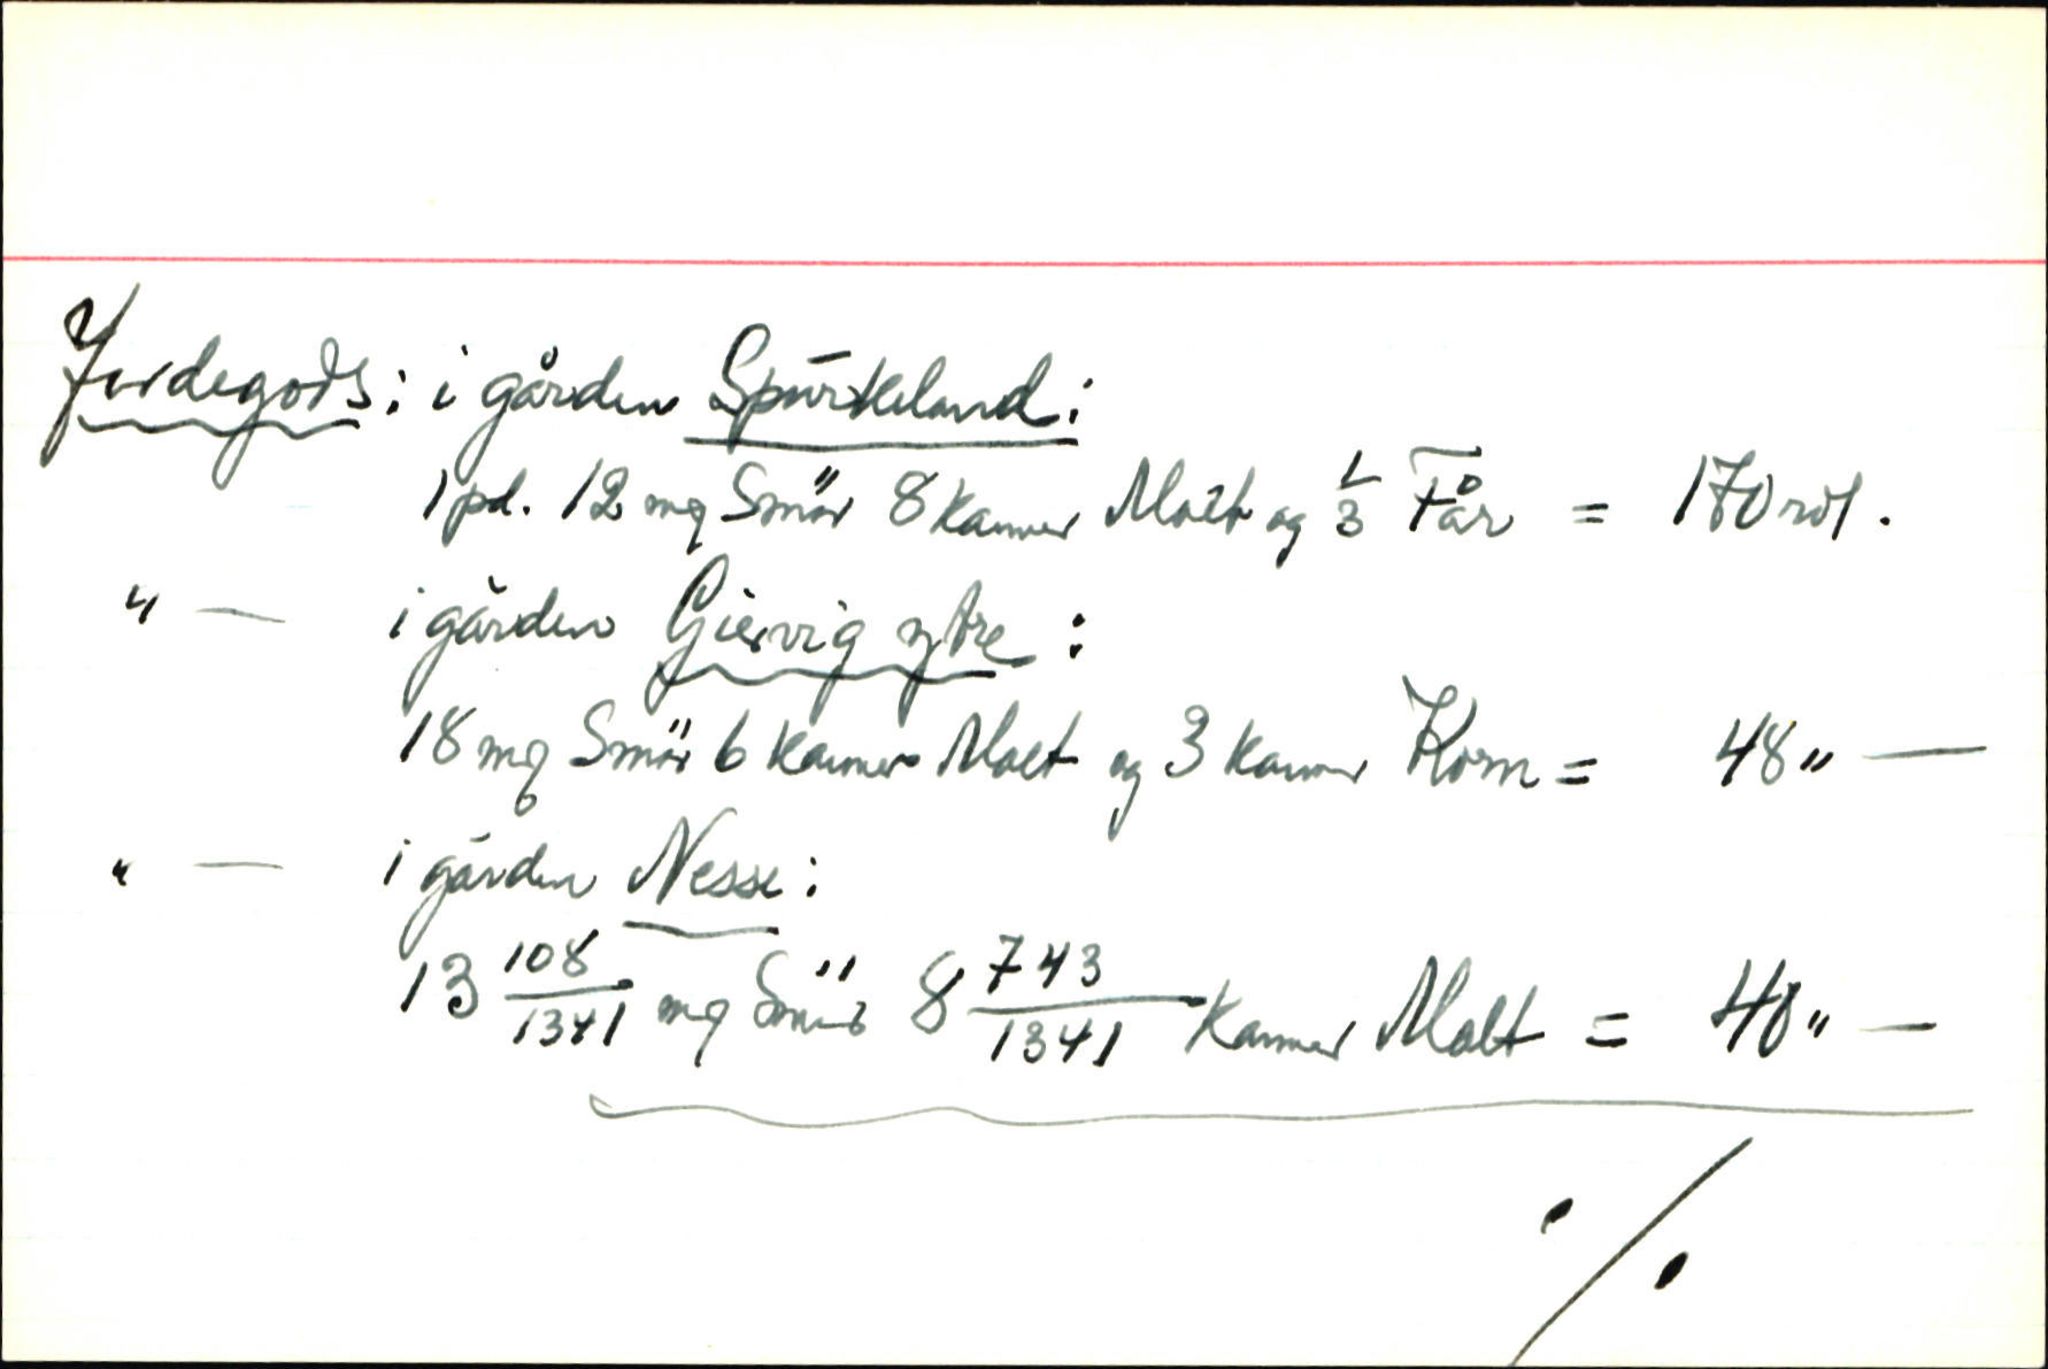 Jordegods: i gården Spurkeland:
1 pd. 12 mg Smör 8 Kanner Malt og 1/3 Får = 170 rdl.
" — i gården Giervig ytre:
18 mg Smör 6 Kanner Malt og 3 Kanner Korn = 48 " —
" — i gården Nesse:
13 108/1341 mg Smör 8 743/1341 Kanner Malt = 40 " —
./.